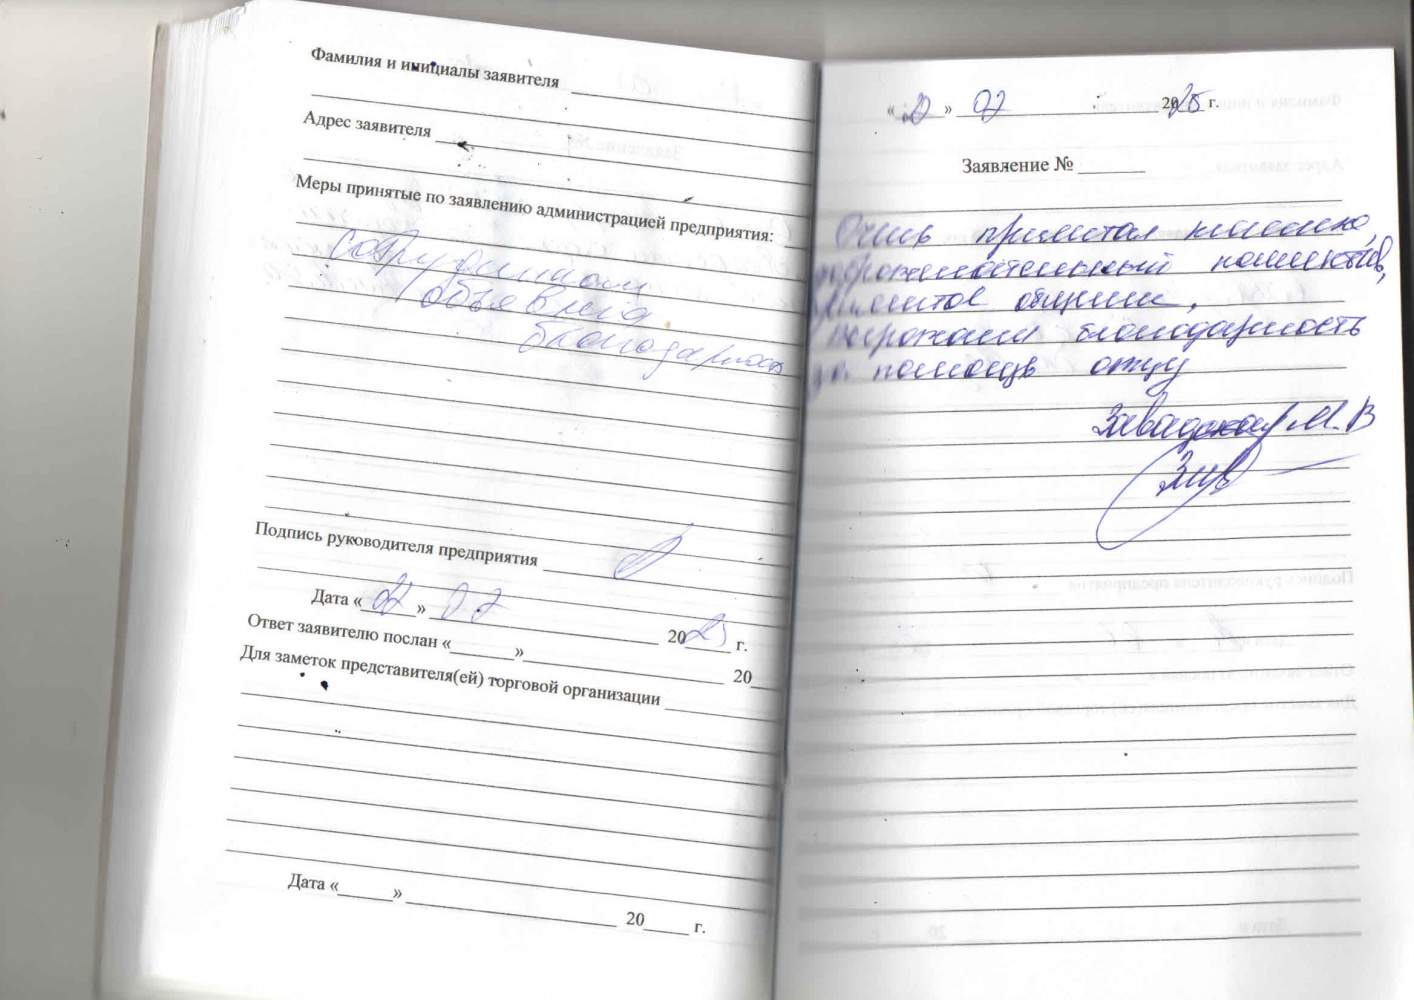 Фамилия и инициалы заявителя
Адрес заявителя
Меры принятые по заявлению администрацией предприятия:
сотрудникам
объявлена
благодарность
Подпись руководителя предприятия
Дата « 02 » 02 20 25 г.
Ответ заявителю послан « » 20
Для заметок представителя(ей) торговой организации
Дата « » 20 г.
« 2 » 02 20 25 г.
Заявление №
Очень приятная
доброжелательный коллектив,
приятное общение,
выражаем благодарность
за помощь отцу
Завадская М.В